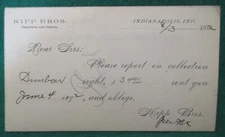 KIPP BROS.
INDIANAPOLIS, IND.
8/13
Dear Sirs:
Please report on collection
Dunbar sight, $34 sent you
June 4 189, and oblige,
Kipp Bros.